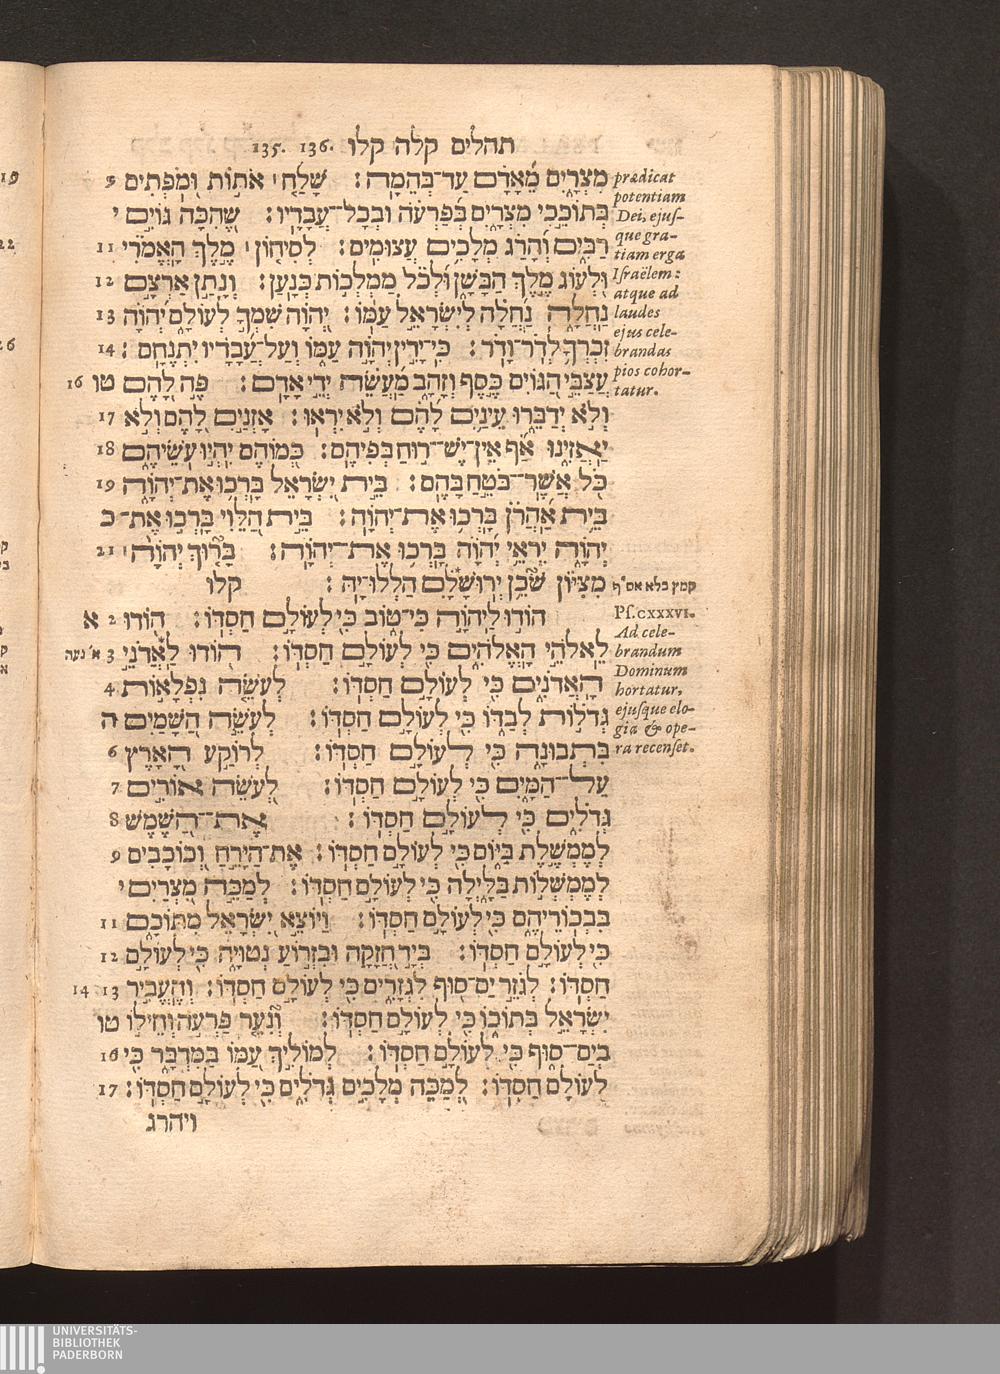 תהלים קלה קלו 136. 135.
מִצְרָיִם מֵאָדָם עַד־בְּהֵמָה׃ שָׁלַח׀ אֹתוֹת וּמֹפְתִים 9
בְּתוֹכֵכִי מִצְרָיִם בְּפַרְעֹה וּבְכָל־עֲבָדָיו׃ שֶׁהִכָּה גּוֹיִם י
רַבִּים וְהָרַג מְלָכִים עֲצוּמִים׃ לְסִיחוֹן׀ מֶלֶךְ הָאֱמֹרִי 11
וּלְעוֹג מֶלֶךְ הַבָּשָׁן וּלְכֹל מַמְלְכוֹת כְּנָעַן׃ וְנָתַן אַרְצָם 12
נַחֲלָה נַחֲלָה לְיִשְׂרָאֵל עַמּוֹ׃ יְהוָֹה שִׁמְךָ לְעוֹלָם יְהוָֹה 13
זִכְרְךָ לְדֹר־וָדֹר׃ כִּי־יָדִין יְהוָֹה עַמּוֹ וְעַל־עֲבָדָיו יִתְנֶחָם׃ 14
עֲצַבֵּי הַגּוֹיִם כֶּסֶף וְזָהָב מַעֲשֵׂה יְדֵי אָדָם׃ פֶּה לָהֶם טו 16
וְלֹא יְדַבֵּרוּ עֵינַיִם לָהֶם וְלֹא יִרְאוּ׃ אָזְנַיִם לָהֶם וְלֹא 17
יַאֲזִינוּ אַף אֵין־יֶשׁ־רוּחַ בְּפִיהֶם׃ כְּמוֹהֶם יִהְיוּ עֹשֵׂיהֶם 18
כֹּל אֲשֶׁר־בֹּטֵחַ בָּהֶם׃ בֵּית יִשְׂרָאֵל בָּרְכוּ אֶת־יְהוָֹה 19
בֵּית אַהֲרֹן בָּרְכוּ אֶת־יְהוָֹה׃ בֵּית הַלֵּוִי בָּרְכוּ אֶת־ כ
יְהוָֹה יִרְאֵי יְהוָֹה בָּרְכוּ אֶת־יְהוָֹה׃ בָּרוּךְ יְהוָֹה׀ 21
מִצִּיּוֹן שֹׁכֵן יְרוּשָׁלָ͏ִם הַלְלוּ־יָהּ׃ קלו
הוֹדוּ לַיהוָֹה כִּי־טוֹב כִּי לְעוֹלָם חַסְדּוֹ׃ הוֹדוּ 2 א
לֵאלֹהֵי הָאֱלֹהִים כִּי לְעוֹלָם חַסְדּוֹ׃ הוֹדוּ לַאֲדֹנֵי 3
הָאֲדֹנִים כִּי לְעוֹלָם חַסְדּוֹ׃ לְעֹשֵׂה נִפְלָאוֹת 4
גְּדֹלוֹת לְבַדּוֹ כִּי לְעוֹלָם חַסְדּוֹ׃ לְעֹשֵׂה הַשָּׁמַיִם ה
בִּתְבוּנָה כִּי לְעוֹלָם חַסְדּוֹ׃ לְרוֹקַע הָאָרֶץ 6
עַל־הַמָּיִם כִּי לְעוֹלָם חַסְדּוֹ׃ לְעֹשֵׂה אוֹרִים 7
גְּדֹלִים כִּי לְעוֹלָם חַסְדּוֹ׃ אֶת־הַשֶּׁמֶשׁ 8
לְמֶמְשֶׁלֶת בַּיּוֹם כִּי לְעוֹלָם חַסְדּוֹ׃ אֶת־הַיָּרֵחַ וְכוֹכָבִים 9
לְמֶמְשְׁלוֹת בַּלָּיְלָה כִּי לְעוֹלָם חַסְדּוֹ׃ לְמַכֵּה מִצְרַיִם י
בִּבְכוֹרֵיהֶם כִּי לְעוֹלָם חַסְדּוֹ׃ וַיּוֹצֵא יִשְׂרָאֵל מִתּוֹכָם 11
כִּי לְעוֹלָם חַסְדּוֹ׃ בְּיָד חֲזָקָה וּבִזְרוֹעַ נְטוּיָה כִּי לְעוֹלָם 12
חַסְדּוֹ׃ לְגֹזֵר יַם־סוּף לִגְזָרִים כִּי לְעוֹלָם חַסְדּוֹ׃ וְהֶעֱבִיר 13 14
יִשְׂרָאֵל בְּתוֹכוֹ כִּי לְעוֹלָם חַסְדּוֹ׃ וְנִעֵר פַּרְעֹה וְחֵילוֹ טו
בְיַם־סוּף כִּי לְעוֹלָם חַסְדּוֹ׃ לְמוֹלִיךְ עַמּוֹ בַּמִּדְבָּר כִּי 16
לְעוֹלָם חַסְדּוֹ׃ לְמַכֵּה מְלָכִים גְּדֹלִים כִּי לְעוֹלָם חַסְדּוֹ׃ 17
ויהרג
prædicat
potentiam
Dei, ejus-
que gra-
tiam erga
Israëlem:
atque ad
laudes
ejus cele-
brandas
pios cohor-
tatur.
קמץ בלא אס"ף
Ps. CXXXVI.
Ad cele-
brandum
Dominum
hortatur,
ejusque elo-
gia & ope-
ra recenset.
א' נעה
19
22
26
UNIVERSITÄTS-
BIBLIOTHEK
PADERBORN